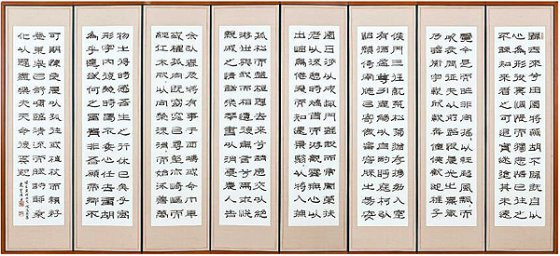 歸去來兮田園將蕪胡不歸既自以
心爲形役奚惆悵而獨悲悟已往之
不諫知來者之可追寔迷途其未遠
覺今是而昨非舟遙遙以輕颺風飄飄而
吹衣問征夫以前路恨晨光之熹微
乃瞻衡宇載欣載奔僮僕歡迎稚子
候門三徑就荒松菊猶存攜幼入室
有酒盈樽引壺觴以自酌眄庭柯以
怡顔倚南窗以寄傲審容膝之易安
園日涉以成趣門雖設而常關策扶
老以流憩時矯首而遐觀雲無心以
出岫鳥倦飛而知還景翳翳以將入撫
孤松而盤桓歸去來兮請息交以絕
游世與我而相違復駕言兮焉求悅
親戚之情話樂琴書以消憂農人告
余以春及將有事于西疇或命巾車
或棹孤舟既窈窕以尋壑亦崎嶇而
經丘木欣欣以向榮泉涓涓而始流善萬
物之得時感吾生之行休已矣乎寓
形宇內復幾時曷不委心任去留胡
爲乎遑遑欲何之富貴非吾願帝鄉不
可期懷良辰以孤往或植杖而耘耔
登東皋以舒嘯臨清流而賦詩聊乘
化以歸盡樂夫天命復奚疑